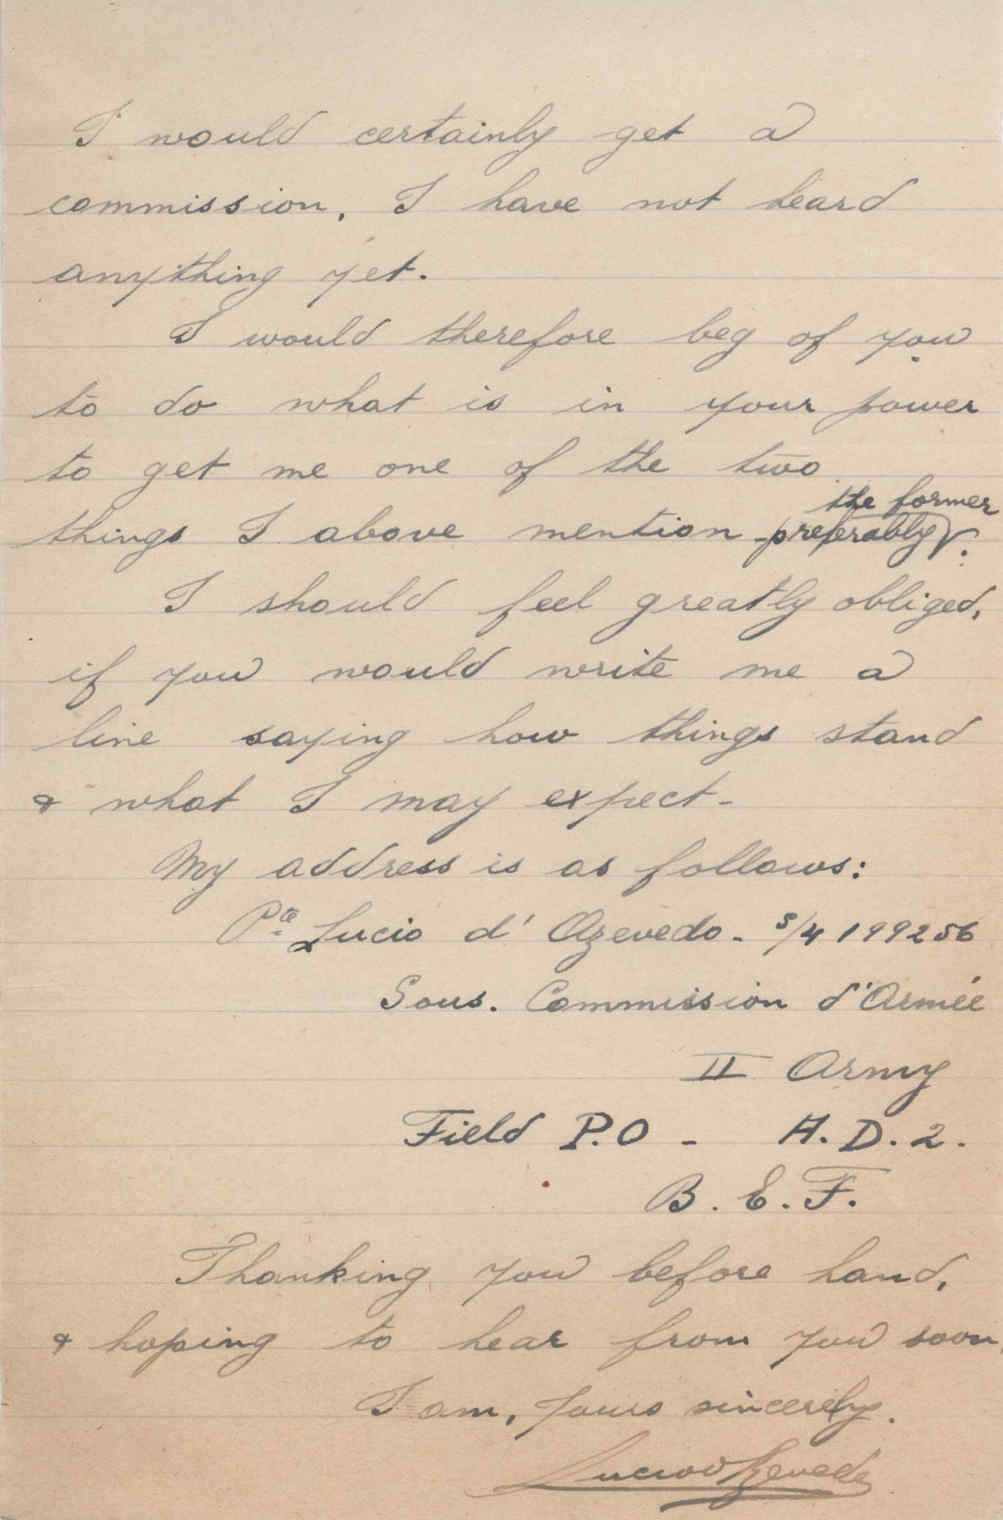 I would certainly get a
commission. I have not heard
anything yet.
I would therefore beg of you
to do what is in your power
to get me one of the two
things I above mention - preferably the former.
I should feel greatly obliged,
if you would write me a
line saying how things stand
& what I may expect -
My address is as follows:
Pte Lucio d'Azevedo - S/4 199256
Sous. Commission d'Armée
II Army
Field P.O - A.D.2.
B.E.F.
Thanking you before hand,
& hoping to hear from you soon,
I am, Yours sincerely.
Lucio d'Azevedo